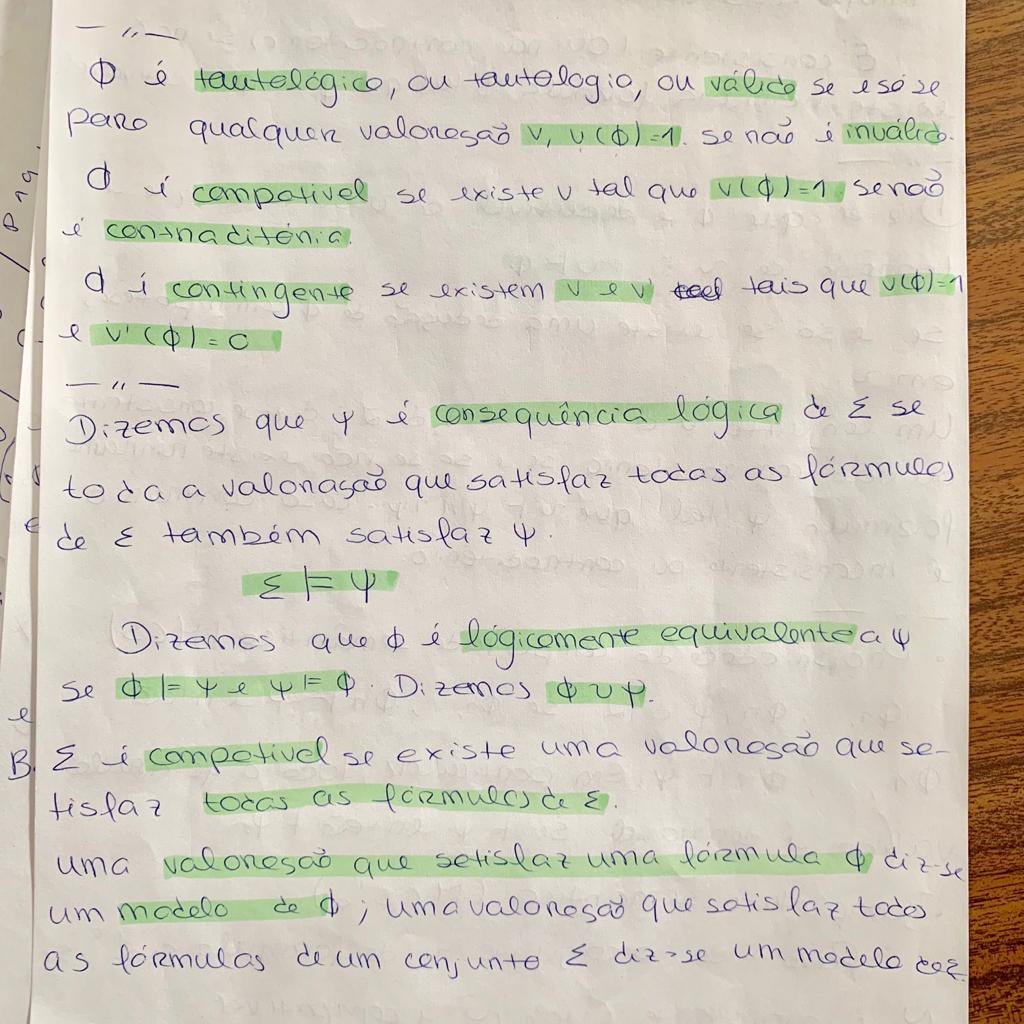 — 〃 —
Φ é tautológico, ou tautologia, ou válido se e só se
para qualquer valoração v, v(Φ)=1. se não é inválido.
Φ é compatível se existe v tal que v(Φ)=1 senão
é contraditória.
Φ é contingente se existem v e v' tais que v(Φ)=1
e v'(Φ)=0
— 〃 —
Dizemos que ψ é consequência lógica de Σ se
toda a valoração que satisfaz todas as fórmulas
de Σ também satisfaz ψ.
Σ ⊨ ψ
Dizemos que Φ é lógicamente equivalente a ψ
se Φ ⊨ ψ e ψ ⊨ Φ. Dizemos Φ ∪ ψ.
Σ é compatível se existe uma valoração que sa-
tisfaz todas as fórmulas de Σ.
uma valoração que satisfaz uma fórmula Φ diz-se
um modelo de Φ; uma valoração que satisfaz todas
as fórmulas de um conjunto Σ diz-se um modelo de Σ.